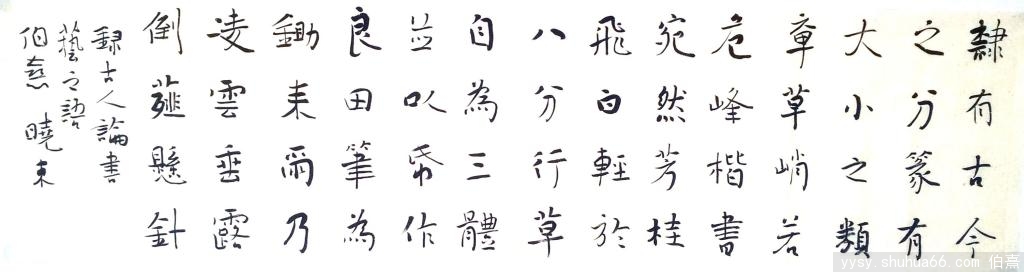 隸有古今
之分篆有
大小之類
章草峭若
危峰楷書
宛然芳桂
飛白輕於
八分行草
自為三體
並以帋作
良田筆為
鋤耒雨乃
凌雲垂露
倒薤懸針
錄古人論書
藝之語
伯熹 曉東
yysy.shuhua66.com 伯熹